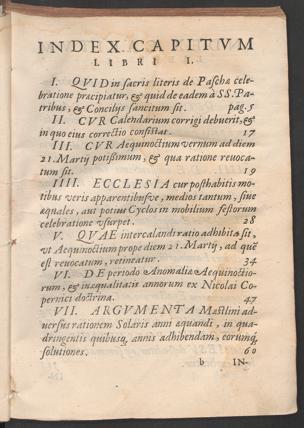 INDEX CAPITVM
LIBRI I.
I. QVID in sacris literis de Pascha cele-
bratione præcipiatur, & quid de eadem à SS. Pa-
tribus, & Concilijs sancitum sit. pag. 5
II. CVR Calendarium corrigi debuerit, &
in quo eius correctio consistat. 17
III. CVR Aequinoctium vernum ad diem
21. Martij potißimum, & qua ratione reuoca-
tum sit. 19
IIII. ECCLESIA cur posthabitis mo-
tibus veris apparentibusve, medios tantum, siue
æquales, aut potius Cyclos in mobilium festorum
celebratione vsurpet. 28
V. QVAE intercalandi ratio adhibita sit,
vt Aequinoctium prope diem 21. Martij, ad quē
est reuocatum, retineatur. 34
VI. DE periodo Anomaliæ Aequinoctio-
rum, & inæqualitatis annorum ex Nicolai Co-
pernici doctrina. 47
VII. ARGVMENTA Mæstlini ad-
uersus rationem Solaris anni æquandi, in qua-
dringentis quibusq; annis adhibendam, eorumq;
solutiones. 60
b IN-